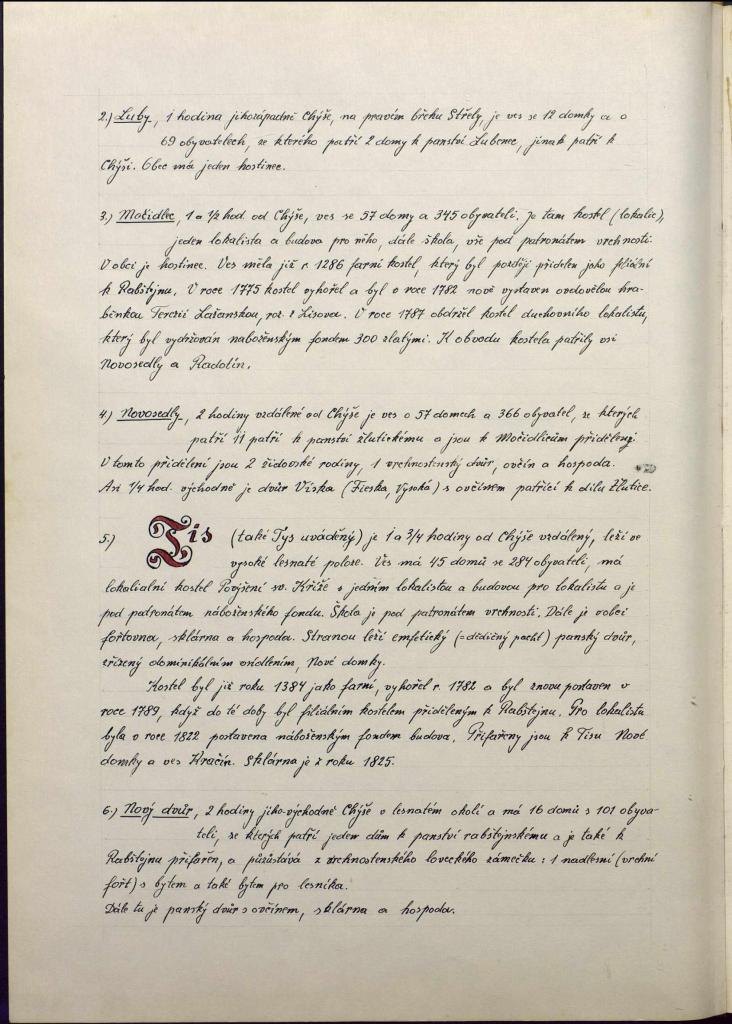 2.) Luby, 1 hodina jihozápadně Chýše, na pravém břehu Střely, je ves se 12 domky a o
69 obyvatelech, ze kterého patří 2 domy k panství Lubenec, jinak patří k
Chýši. Obec má jeden hostinec.
3.) Močidlec, 1 a 1/2 hod. od Chýše, ves se 57 domy a 345 obyvateli. Je tam kostel (lokalie),
jeden lokalista a budova pro něho, dále škola, vše pod patronátem vrchnosti.
V obci je hostinec. Ves měla již r. 1286 farní kostel, který byl později přidělen jako filiální
k Rabštejnu. V roce 1775 kostel vyhořel a byl v roce 1782 nově vystaven ovdovělou hra-
běnkou Terezií Lažanskou, roz. z Lisova. V roce 1787 obdržel kostel duchovního lokalistu,
který byl vydržován náboženským fondem 300 zlatými. K obvodu kostela patřily vsi
Novosedly a Radotín.
4.) Novosedly, 2 hodiny vzdálené od Chýše je ves o 57 domech a 366 obyvatel, ze kterých
patří 11 patří k panství žlutickému a jsou k Močidlicům přiděleny
V tomto přidělení jsou 2 židovské rodiny, 1 vrchnostenský dvůr, ovčín a hospoda.
Asi 1/4 hod. východně je dvůr Víska (Fieska, Vysoká) s ovčínem patřící k dílu Žlutice.
5.) Tis (také Tys uváděný) je 1 a 3/4 hodiny od Chýše vzdálený, leží ve
vysoké lesnaté poloze. Ves má 45 domů se 284 obyvateli, má
lokaliální kostel Povýšení sv. Kříže s jedním lokalistou a budovou pro lokalistu a je
pod patronátem náboženského fondu. Škola je pod patronátem vrchnosti. Dále je v obci
fořtovna, sklárna a hospoda. Stranou leží emfetický (=dědičný pacht) panský dvůr,
zřízený dominikálním osídlením, Nové domky.
Kostel byl již roku 1384 jako farní, vyhořel r. 1782 a byl znovu postaven v
roce 1789, když do té doby byl filiálním kostelem přiděleným k Rabštejnu. Pro lokalistu
byla v roce 1822 postavena náboženským fondem budova. Přifařeny jsou k Tisu Nové
domky a ves Kračín. Sklárna je z roku 1825.
6.) Nový dvůr, 2 hodiny jiho-východně Chýše v lesnatém okolí a má 16 domů s 101 obyva-
teli, ze kterých patří jeden dům k panství rabštýnskému a je také k
Rabštejnu přifařen, a půzůstává z vrchnostenského loveckého zámečku: 1 nadlesní (vrchní
fořt) s bytem a také bytem pro lesníka.
Dále tu je panský dvůr s ovčínem, sklárna a hospoda.